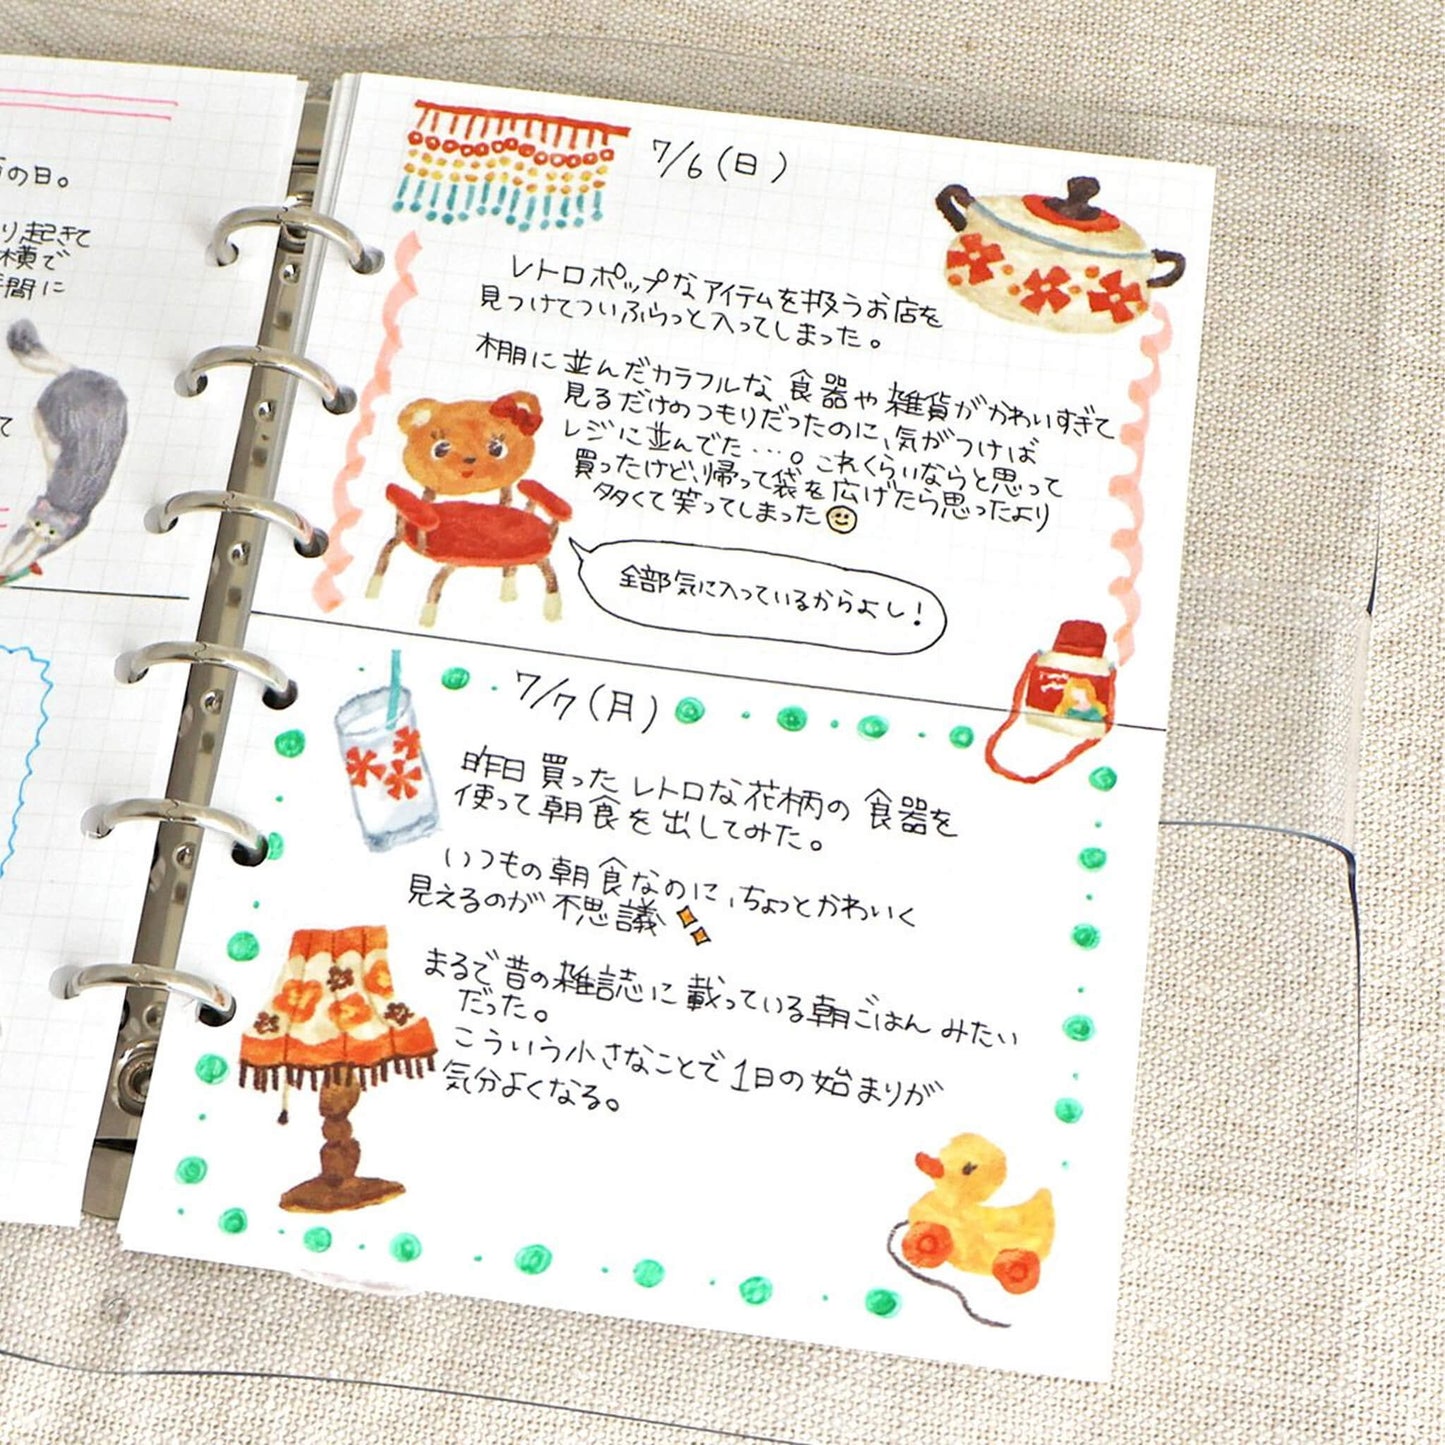 の日。
り起きて
横で
間に
て
7/6(日)
レトロポップなアイテムを扱うお店を
見つけてついふらっと入ってしまった。
棚に並んだカラフルな食器や雑貨がかわいすぎて
見るだけのつもりだったのに、気がつけば
レジに並んでた…。これくらいならと思って
買ったけど、帰って袋を広げたら思ったより
多くて笑ってしまった
全部気に入っているからよし!
7/7(月)
昨日買ったレトロな花柄の食器を
使って朝食を出してみた。
いつもの朝食なのに、ちょっとかわいく
見えるのが不思議
まるで昔の雑誌に載っている朝ごはんみたい
だった。
こういう小さなことで1日の始まりが
気分よくなる。